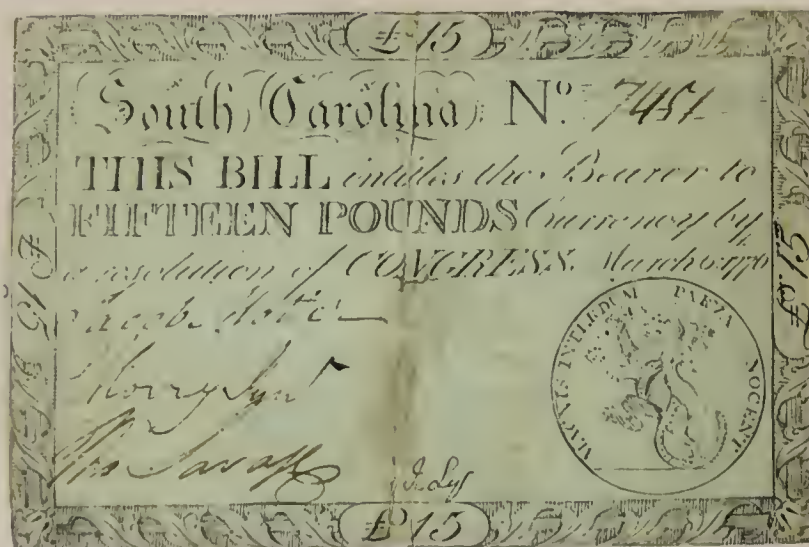 £15
South Carolina Nº. 7451
THIS BILL entitles the Bearer to
FIFTEEN POUNDS Currency by
a resolution of CONGRESS. March 6. 1776
£15
£15
Jacob
Tho
Tho Savage
MAGNIS INTERDUM PARVA NOCENT
£15